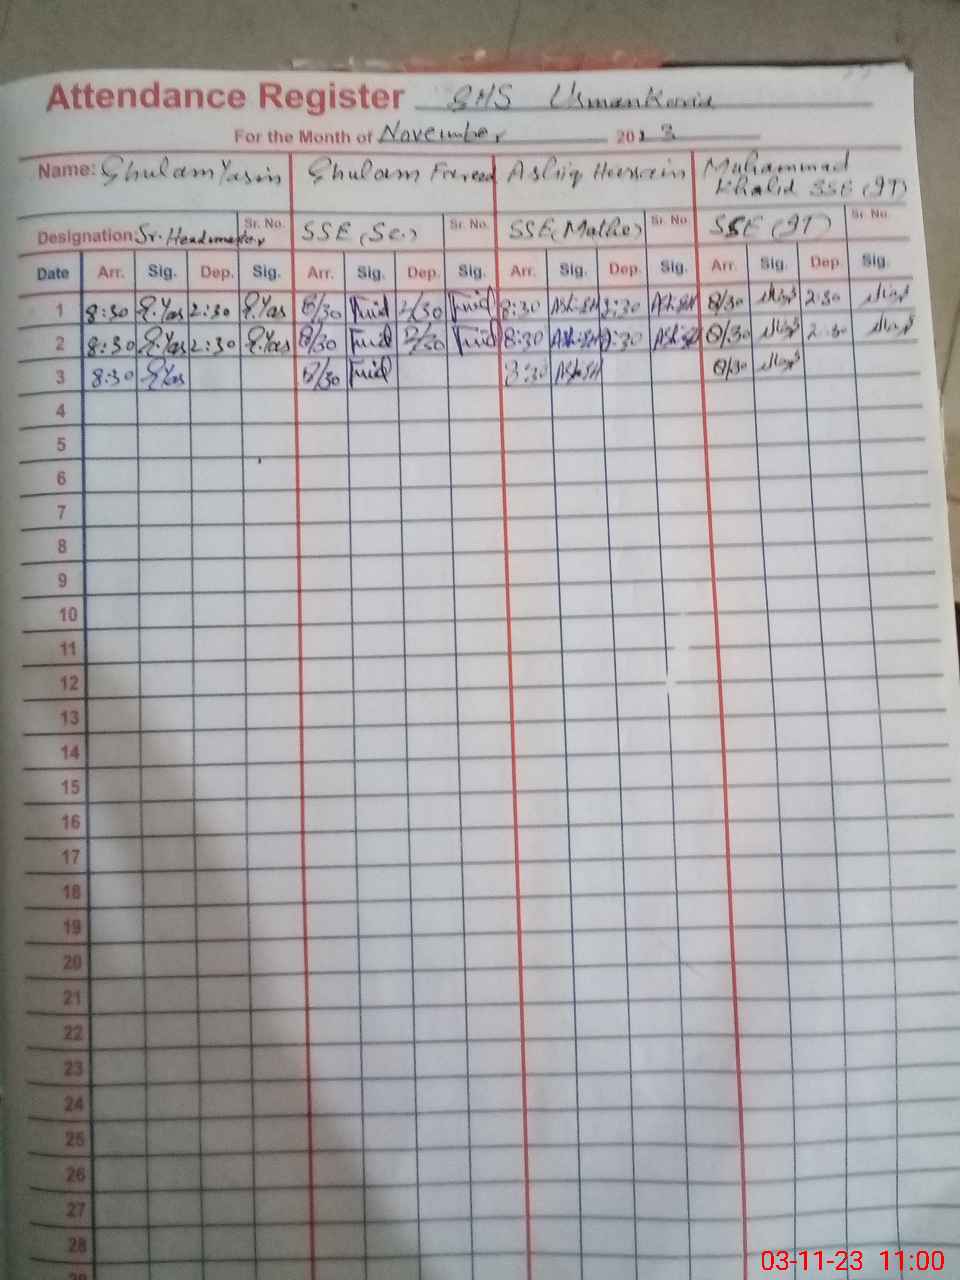 Attendance Register GHS Usman Koria
For the Month of November 2023
Name: Ghulam Yasin Ghulam Fareed Ashiq Hussain Muhammad
Khalid SSE (IT)
Designation Sr. Headmaster Sr. No. SSE (Sc.) Sr. No. SSE (Maths) Sr. No. SSE (IT) Sr. No.
Date Arr. Sig. Dep. Sig. Arr. Sig. Dep. Sig. Arr. Sig. Dep. Sig. Arr. Sig. Dep. Sig.
1 8:30 G.Yas 2:30 G.Yas 8/30 Farid 2/30 Farid 8:30 2:30 8/30 2:30
2 8:30 G.Yas 2:30 G.Yas 8/30 Farid 2/30 Farid 8:30 2:30 8/30 2:30
3 8:30 G.Yas 8/30 Farid 8:30 8/30
4
5
6
7
8
9
10
11
12
13
14
15
16
17
18
19
20
21
22
23
24
25
26
27
28
03-11-23 11:00